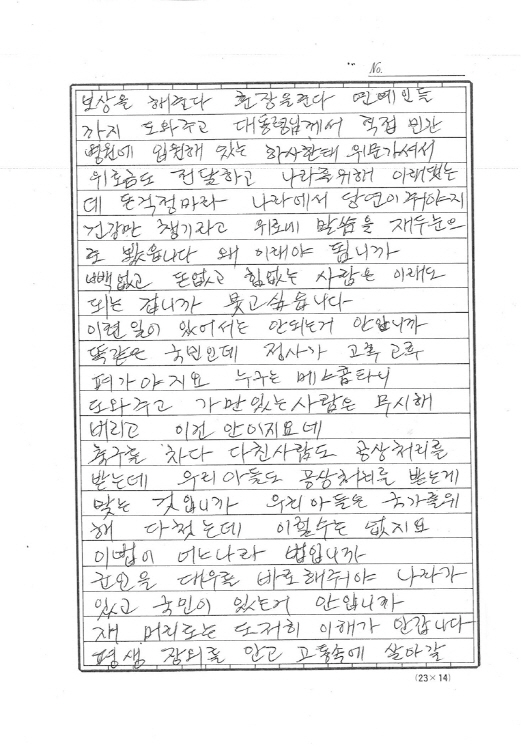 No.
보상을 해준다 훈장을준다 연예인들
까지 도와주고 대통령님께서 직접 민간
병원에 입원해 있는 하사한태 위문가셔서
위로금도 전달하고 나라를위해 이래됐는
데 돈걱정마라 나라에서 당연이줘야지
건강만 챙기자고 위로에 말씀을 재두눈으
로 봤읍니다 왜 이래야 됩니까
빽없고 돈없고 힘없는 사람은 이래도
되는 겁니까 묻고싶읍니다
이런일이 있어서는 안되는거 안입니까
똑같은 국민인데 정사가 고륵고륵
펴가야지요 누구는 메스콤타니
도와주고 가만있는사람은 무시해
버리고 이건 안이지요데
축구를 차다 다친사람도 공상처리를
받는데 우리아들도 공상처리를 받는게
맞는 것입니까 우리아들은 국가를위
해 다첫는데 이럴수는 없지요
이법이 어느나라 법입니까
군인을 대우를 바로해주어야 나라가
있고 국민이 있는거 안입니까
재 머리로는 도저희 이해가 안갑니다
평생 장의를 안고 고통속에 살아갈
(23×14)